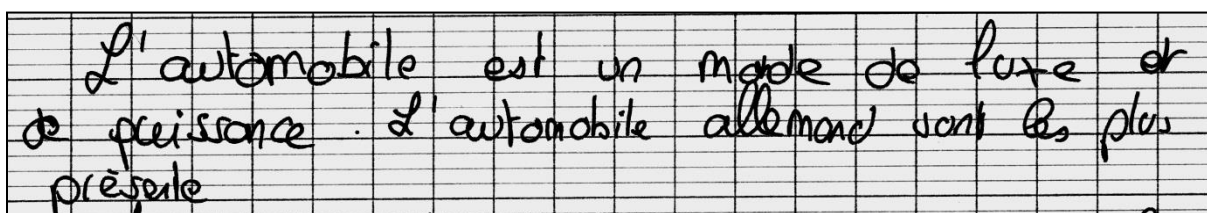 L'automobile est un mode de luxe et
de puissance. L'automobile allemand sont les plus
présente